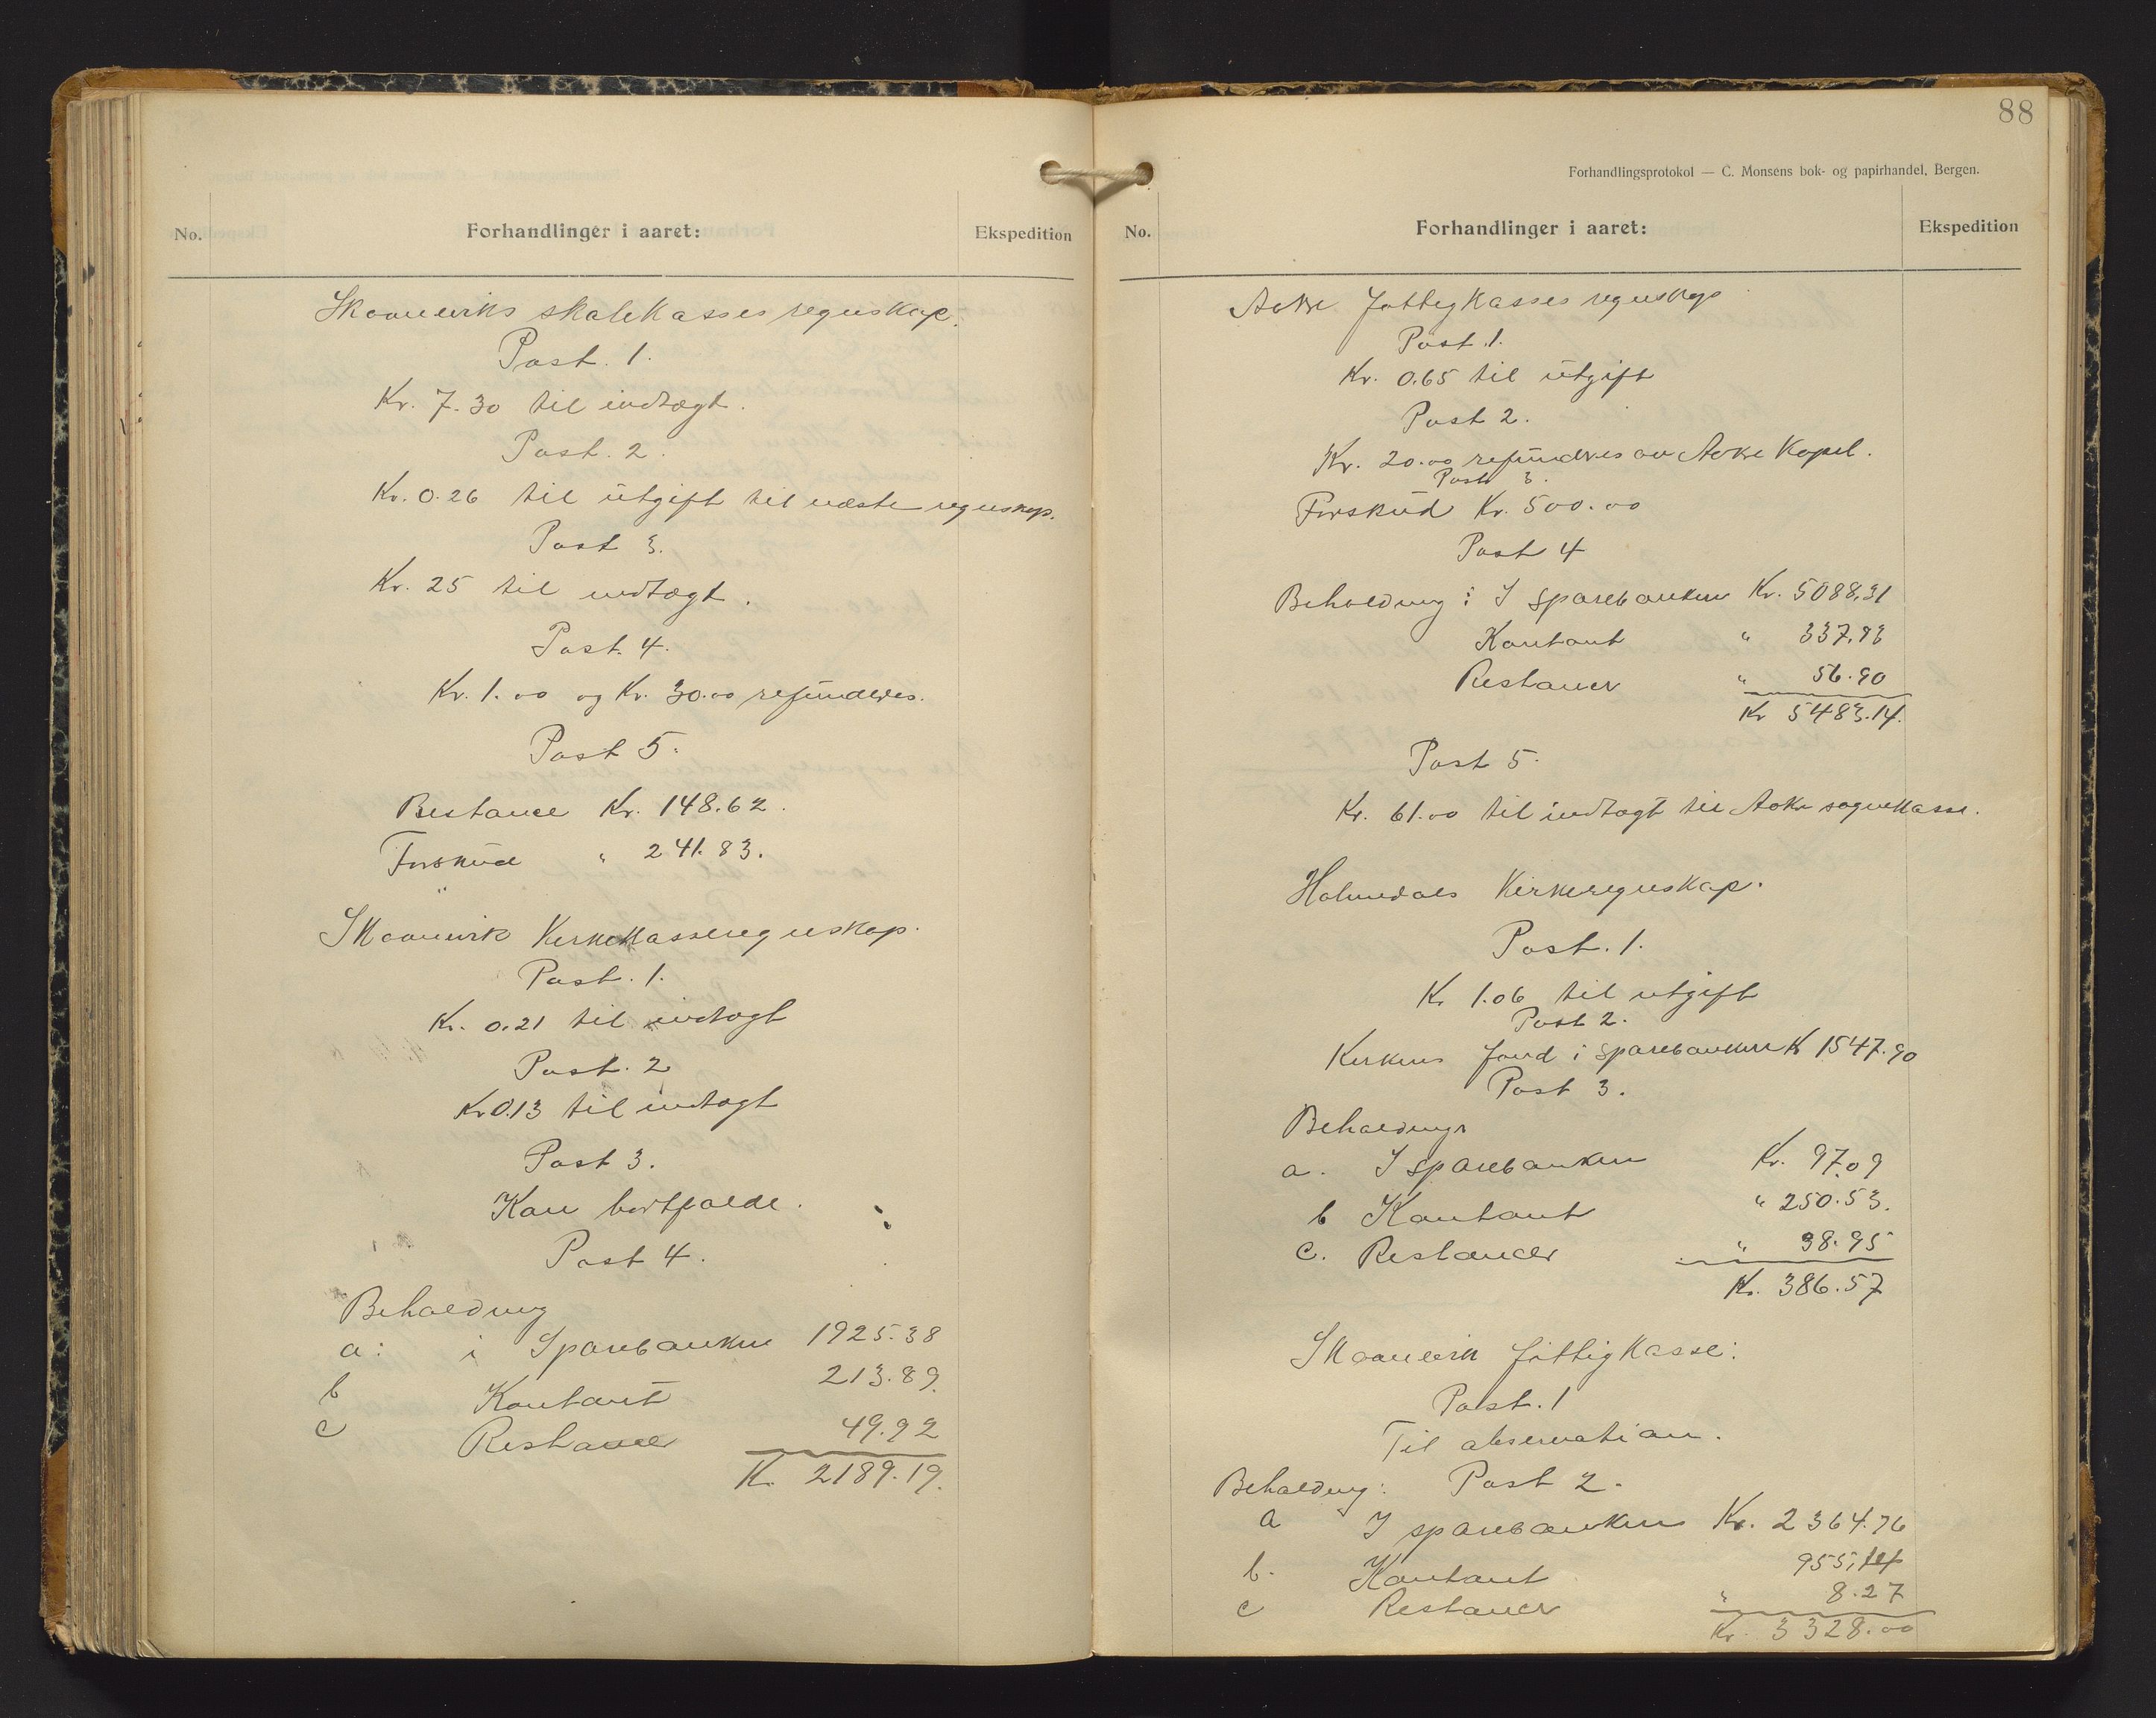 No.
Forhandlinger i aaret:
Ekspedition
Skaaneviks skolekasses regnskap.
Post. 1.
Kr. 7.30 til indtægt.
Post. 2.
Kr. 0.26 til utgift til næste regnskap.
Post 3.
Kr. 25 til indtægt.
Post. 4.
Kr. 1.00 og Kr. 30.00 refunderes.
Post 5.
Restance Kr. 148.62.
Forskud " 241.83.
Skaanevik Kirkekasseregnskap.
Post. 1.
Kr. 0.21 til indtægt
Post. 2
Kr 0.13 til indtægt
Post 3.
Kan bortfalde.
Post 4.
Beholdning
a: i Sparebanken 1925.38
b Kontant 213.89.
c Restance 49.92
Kr. 2189.19.
88
Forhandlingsprotokol — C. Monsens bok- og papirhandel, Bergen.
No.
Forhandlinger i aaret:
Ekspedition
Aakre fattigkasses regnskap
Post. 1.
Kr. 0.65 til utgift
Post 2.
Kr. 20.00 refunderes av Aakre Kapel.
Post 3.
Forskud Kr. 500.00
Post 4
Beholdning: I sparebanken Kr. 5088.31
Kontant " 337.93
Restancer " 56.90
Kr 5483.14.
Post 5.
Kr. 61.00 til indtægt til Aakre sognekasse.
Holmedals Kirkeregnskap.
Post. 1.
Kr 1.06 til utgift
Post 2.
Kirkens fond i sparebanken Kr 1547.90
Post 3.
Beholdninger
a. I sparebanken Kr. 97.09
b Kontant " 250.53.
c. Restancer " 38.95
Kr. 386.57
Skaanevik fattigkasse:
Post. 1
Til observation.
Beholdning: Post 2.
a I sparebanken Kr. 2364.76
b. Kontant 955,14
c Restancer " 8.27
Kr. 3328.00